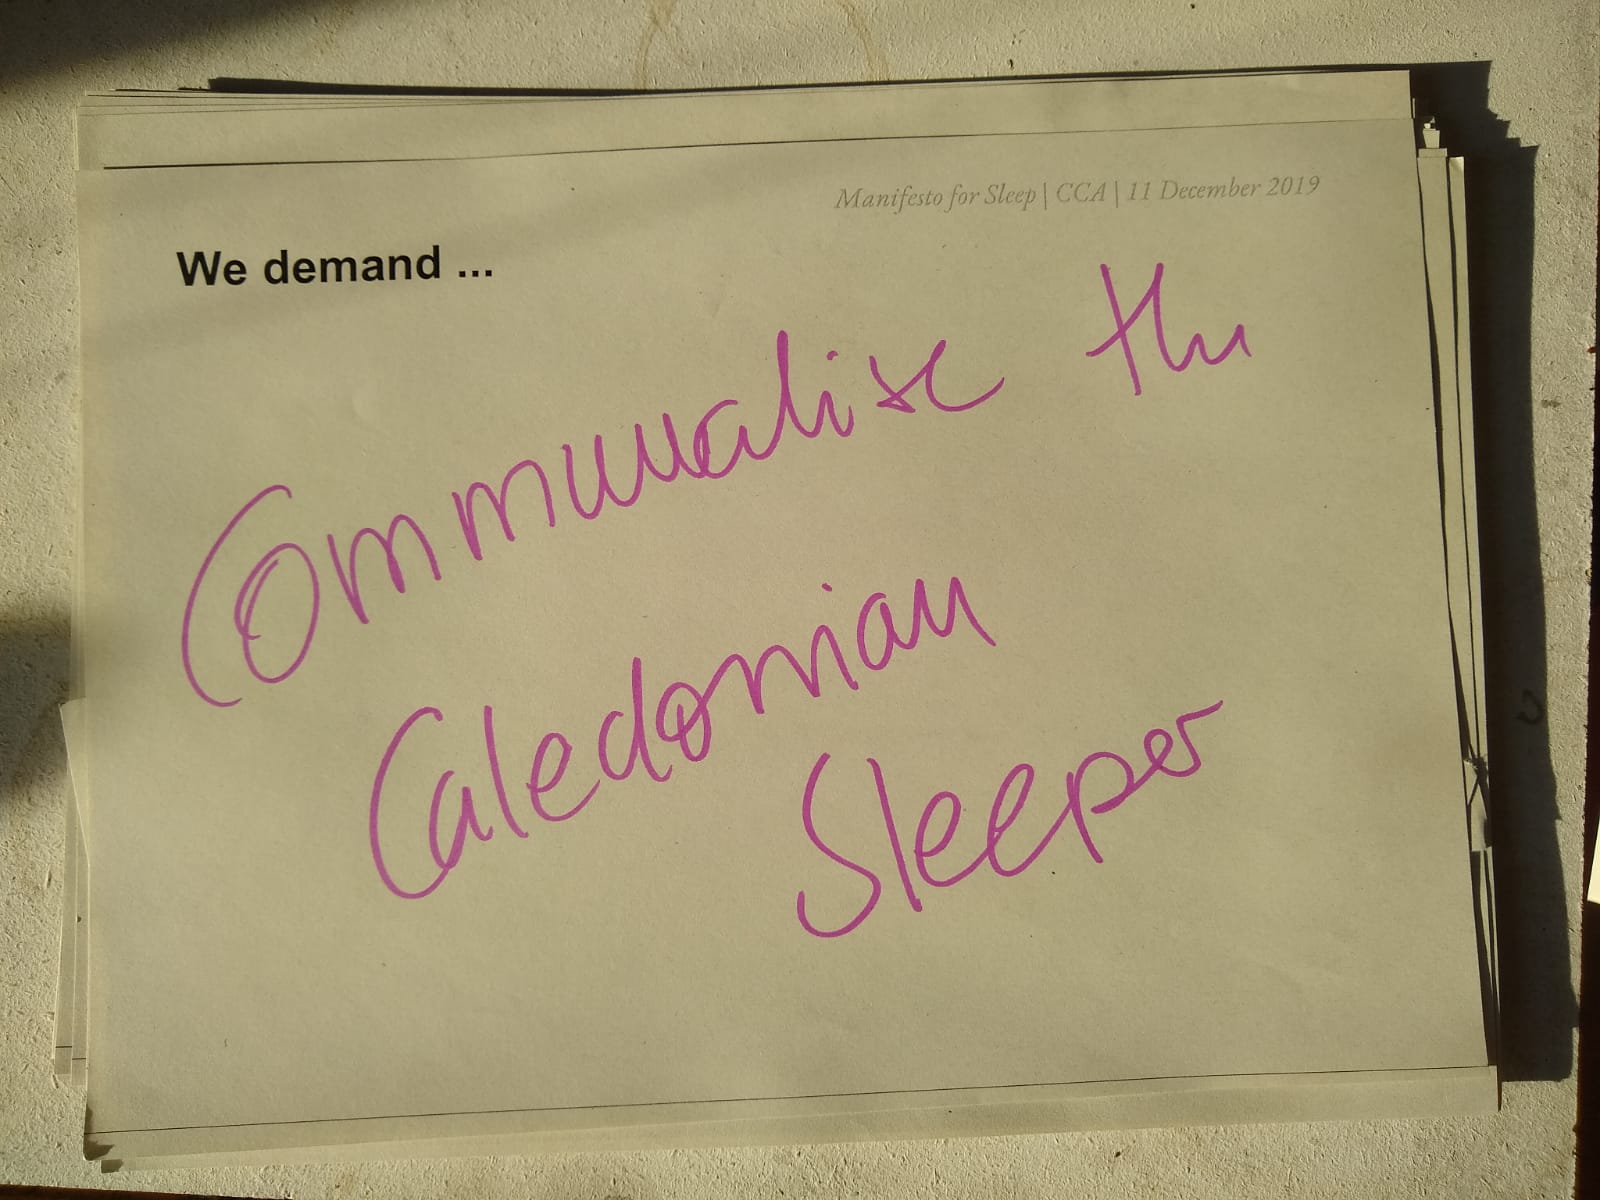 Manifesto for Sleep | CCA | 11 December 2019
We demand ...
Communalise the
Caledonian
Sleeper